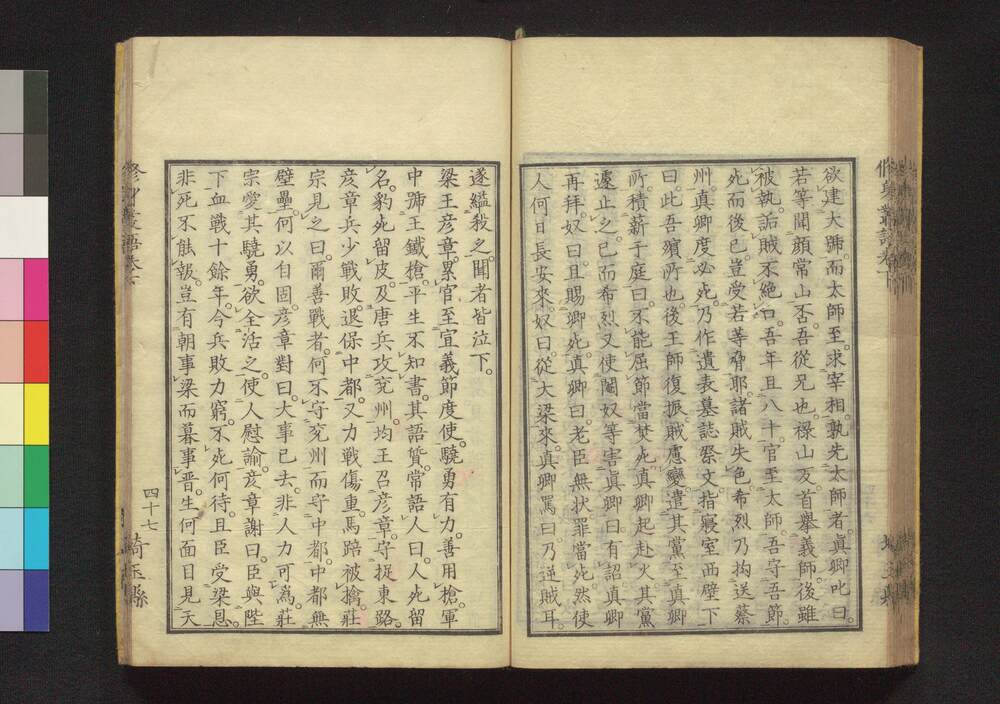 欲建大號。而太師至。求宰相。孰先太師者。真卿叱曰。
若等聞顏常山否。吾從兄也。祿山反。首舉義師。後雖
被執。詬賊不絕口。吾年且八十。官至太師。吾守吾節。
死而後已。豈受若等脅耶。諸賊失色。希烈乃拘送蔡
州。真卿度必死。乃作遺表墓誌祭文。指寢室西壁下
曰。此吾殯所也。後王師復振。賊慮變。遣其黨至真卿
所。積薪于庭曰。不能屈節當焚死。真卿起赴火。其黨
遽止之。已而希烈又使閹奴等害真卿曰。有詔。真卿
再拜。奴曰。且賜卿死。真卿曰。老臣無狀。罪當死。然使
人何日長安來。奴曰。從大梁來。真卿罵曰。乃逆賊耳。
遂縊殺之。聞者皆泣下。
梁王彥章。累官至宣義節度使。驍勇有力。善用槍。軍
中號王鐵槍。平生不知書。其語質。常語人曰。人死留
名。豹死留皮。及唐兵攻兗州。均王召彥章。守捉東路。
彥章兵少戰敗。退保中都。又力戰傷重。馬踣被擒。莊
宗見之曰。爾善戰者。何不守兗州而守中都。中都無
壁壘。何以自固。彥章對曰。大事已去。非人力可為。莊
宗愛其驍勇。欲全活之。使人慰諭。彥章謝曰。臣與陛
下血戰十餘年。今兵敗力窮。不死何待。且臣受梁恩。
非死不能報。豈有朝事梁而暮事晉。生何面目見天
四十七
埼玉縣